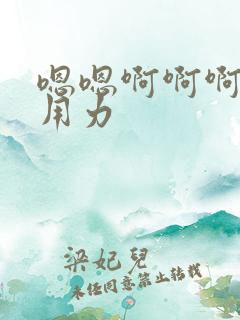 嗯嗯啊啊啊
用力
梁妃儿
未经同意禁止转载